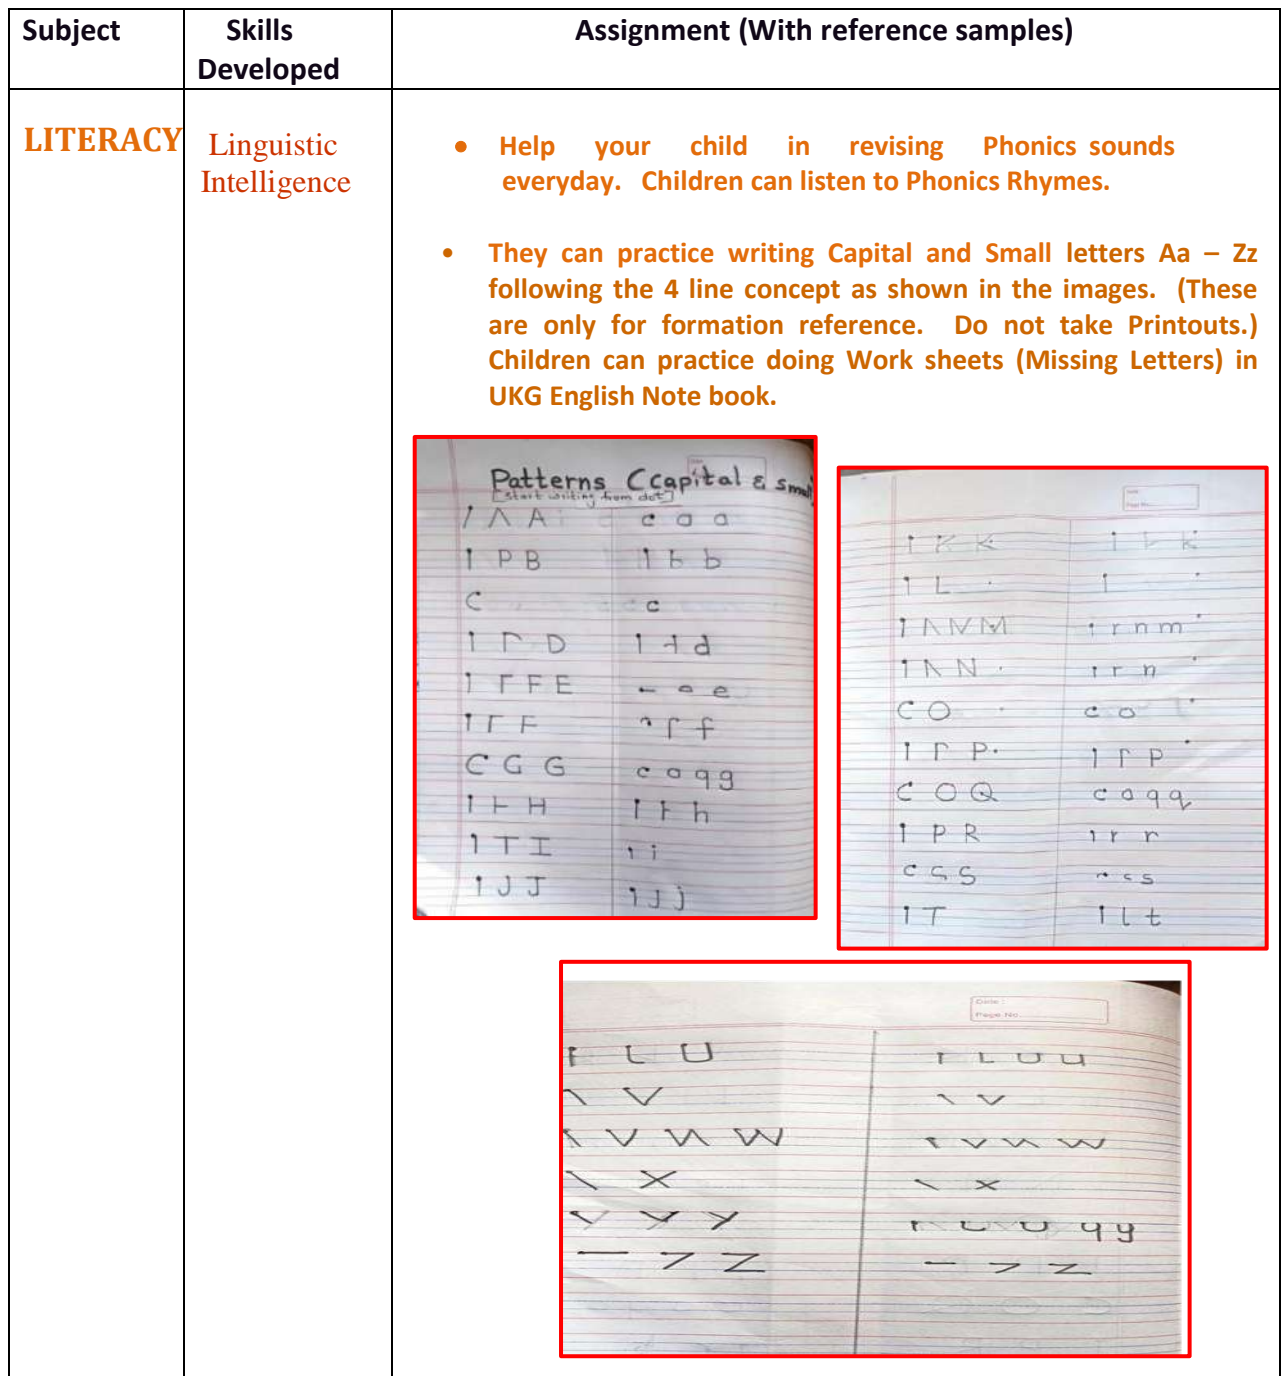 Subject
Skills Developed
Assignment (With reference samples)
LITERACY
Linguistic
Intelligence
• Help your child in revising Phonics sounds
everyday. Children can listen to Phonics Rhymes.
• They can practice writing Capital and Small letters Aa – Zz
following the 4 line concept as shown in the images. (These
are only for formation reference. Do not take Printouts.)
Children can practice doing Work sheets (Missing Letters) in
UKG English Note book.
Patterns (Capital & small)
[Start writing from dot]
/ Λ A c a a
1 P B 1 b b
C c
1 Γ D 1 d d
1 Γ F E - e e
1 Γ F f f
C G G c a g g
1 H H 1 h h
1 T I ı i
1 J J 1 J j
1 K K 1 k k
1 L 1
1 Λ N M ı r n m
1 N N ı r n
C O c o
1 Γ P 1 Γ p
C O Q c a q q
1 P R ı r r
c S S c s
1 T 1 l t
Date :
Page No.
1 L U ı L U u
\ V \ v
\ V V W \ v v w
\ X \ x
\ Y Y ı L U y y
— 7 Z — 7 z